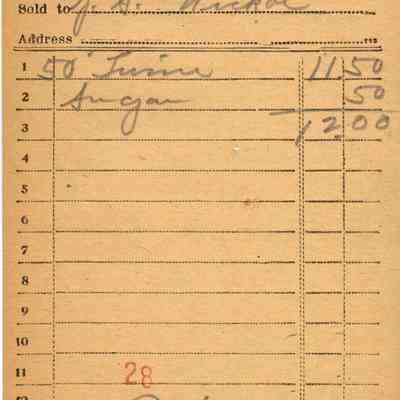 Sold to J. H. Nickol
Address
1 50" Twine 11 50
2 Sugar 50
3 12.00
4
5
6
7
8
9
10
11 28